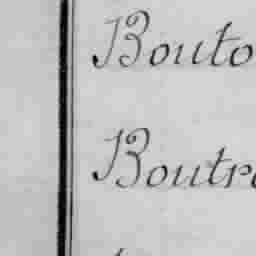 Bouto
Boutr